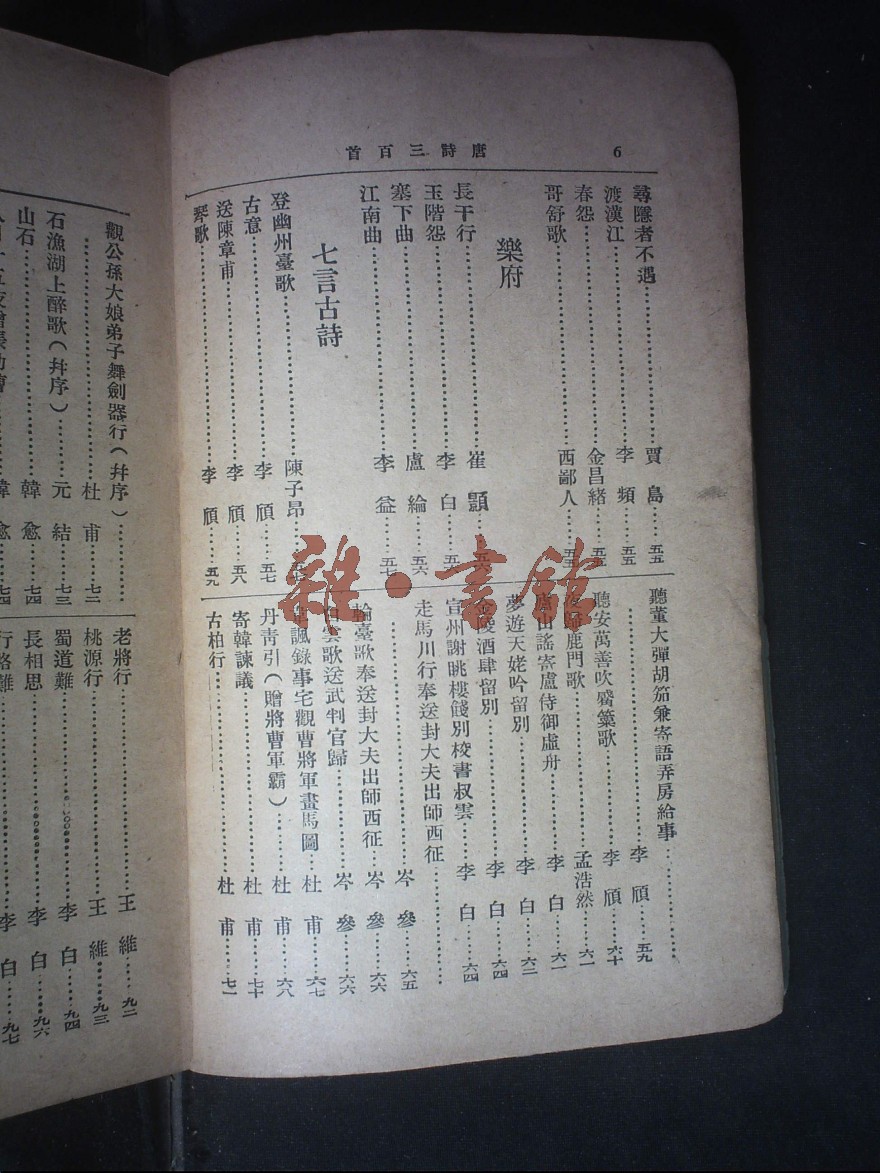 6
唐詩三百首
尋隱者不遇……賈島……五五
渡漢江……李頻……五五
春怨……金昌緒……五五
哥舒歌……西鄙人……五五
樂府
長干行……崔顥……五六
玉階怨……李白……五六
塞下曲……盧綸……五六
江南曲……李益……五七
七言古詩
登幽州臺歌……陳子昂……
古意……李頎……五七
送陳章甫……李頎……五八
琴歌……李頎……五九
聽董大彈胡笳兼寄語弄房給事……
……李頎……五九
聽安萬善吹觱篥歌……李頎……六十
夜歸鹿門歌……孟浩然……六一
廬山謠寄盧侍御虛舟……李白……六一
夢遊天姥吟留別……李白……六二
金陵酒肆留別……李白……六四
宣州謝眺樓餞別校書叔雲……李白……六四
走馬川行奉送封大夫出師西征……
……岑參……六五
輪臺歌奉送封大夫出師西征……岑參……六六
白雲歌送武判官歸……岑參……六六
韋諷錄事宅觀曹將軍畫馬圖……杜甫……六七
丹靑引(贈將曹軍霸)……杜甫……六八
寄韓諫議……杜甫……七十
古柏行……杜甫……七一
觀公孫大娘弟子舞劍器行(幷序)……
……杜甫……七二
石漁湖上醉歌(幷序)……元結……七三
山石……韓愈……七四
韓愈……七四
老將行……王維……九二
桃源行……王維……九三
蜀道難……李白……九四
長相思……李白……九六
行路難……李白……九七
雜·書館